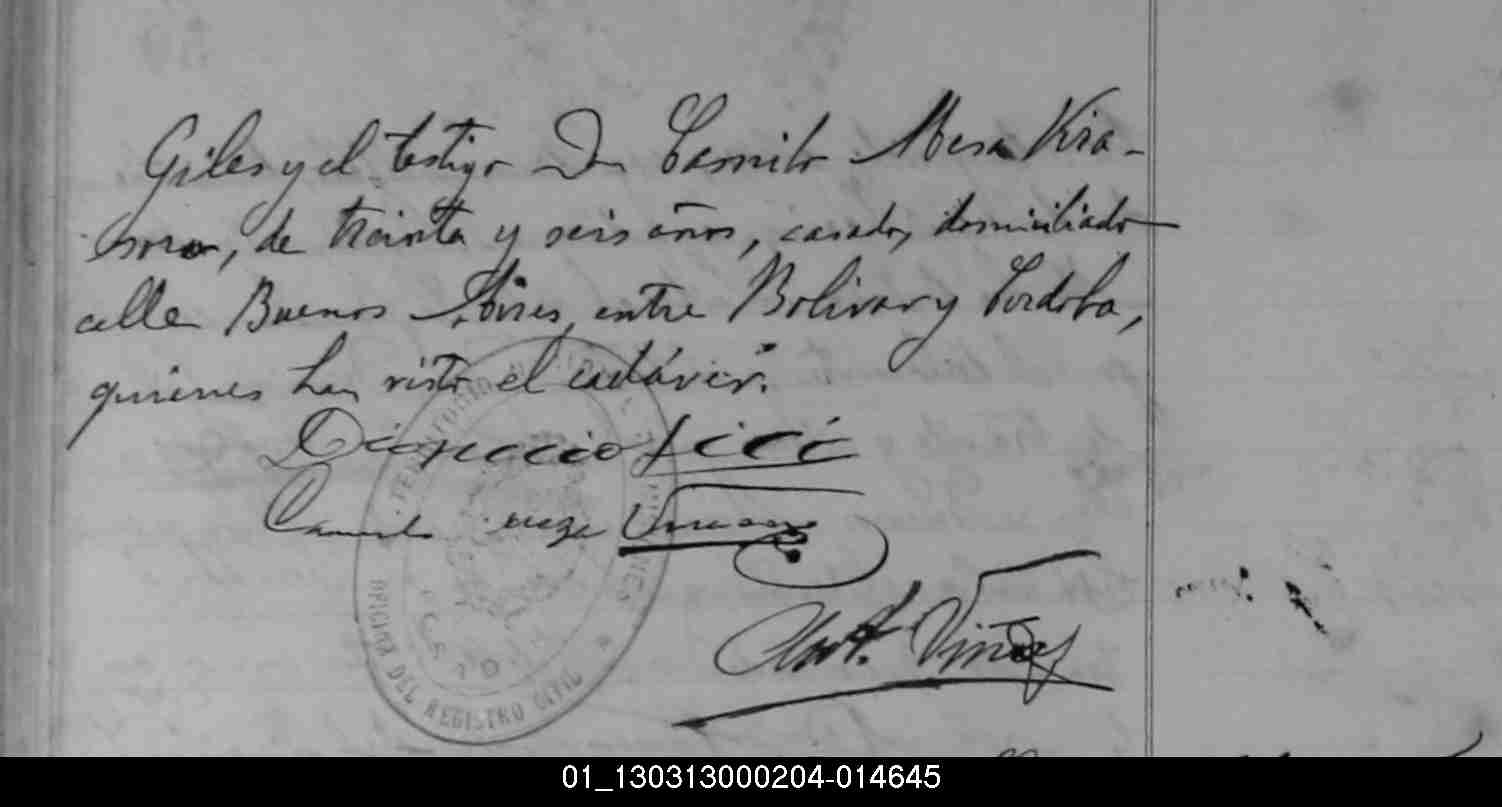 Giles y el testigo Dn Camilo Mesa Vira-
soro, de treinta y seis años, casado, domiciliado
calle Buenos Aires, entre Bolivar y Cordoba,
quienes han visto el cadáver.
Camilo meza
Ant. Viñas
TERRITORIO
OFICINA DEL REGISTRO CIVIL
01_130313000204-014645